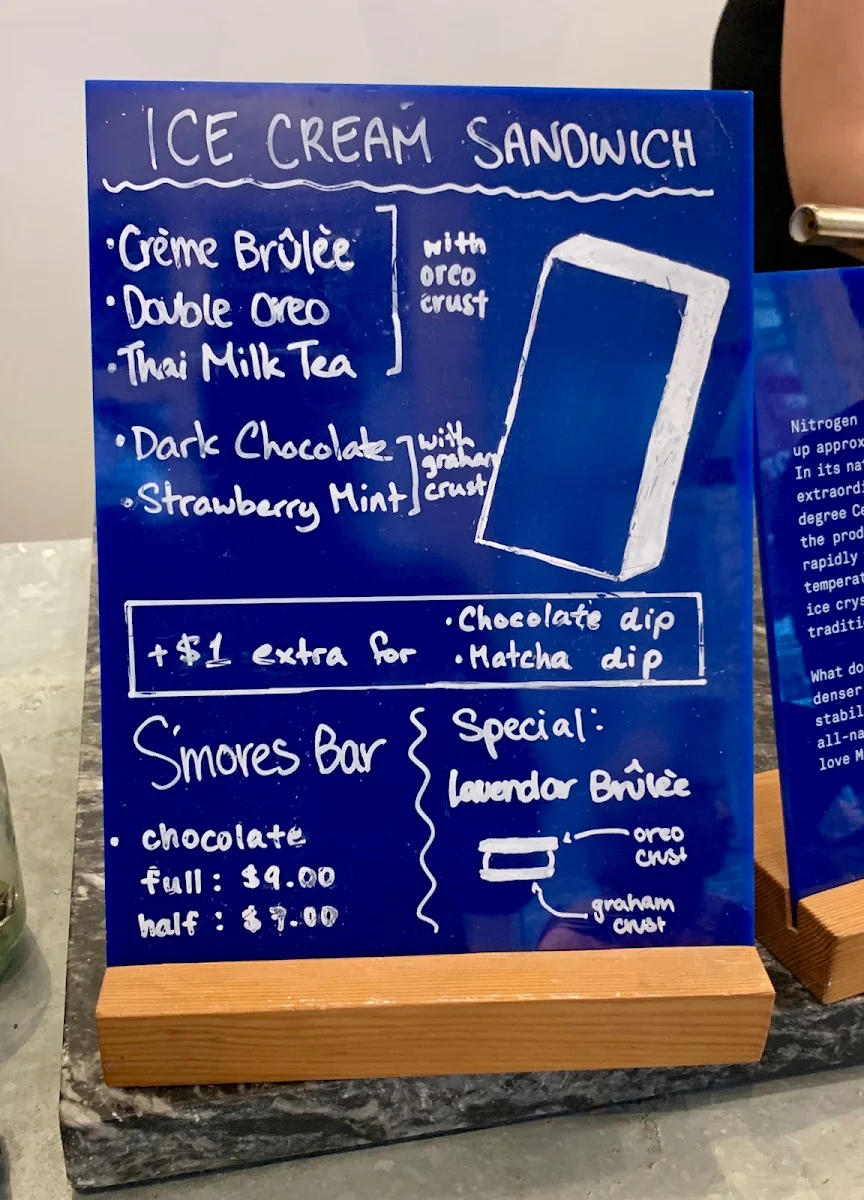 ICE CREAM SANDWICH
• Crème Brûlèe
• Double Oreo
• Thai Milk Tea
with
oreo
crust
• Dark Chocolate
• Strawberry Mint
with
graham
crust
+ $1 extra for
• Chocolate dip
• Matcha dip
S'mores Bar
• chocolate
full : $9.00
half : $7.00
Special:
lavendar Brûlèe
oreo
crust
graham
crust
Nitrogen
up approx
In its
extraordi
degree
the prod
rapidly
temperat
ice crys
traditi
What do
denser
stabil
all-na
love